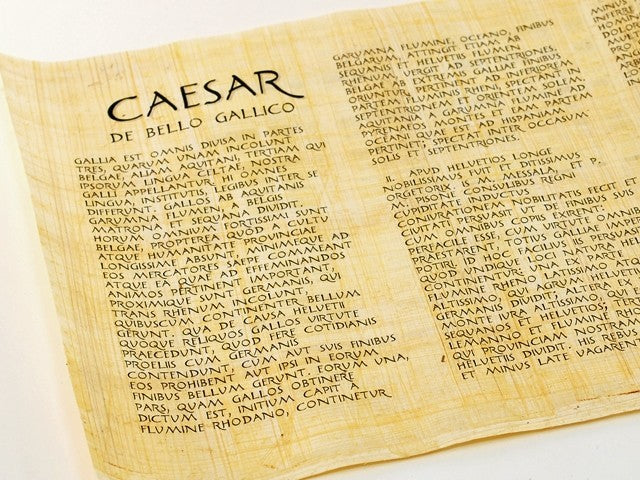 CAESAR
DE BELLO GALLICO
GALLIA EST OMNIS DIVISA IN PARTES
TRES, QUARUM UNAM INCOLUNT
BELGAE, ALIAM AQUITANI, TERTIAM QUI
IPSORUM LINGUA CELTAE, NOSTRA
GALLI APPELLANTUR. HI OMNES
LINGUA, INSTITUTIS, LEGIBUS INTER SE
DIFFERUNT. GALLOS AB AQUITANIS
GARUMNA FLUMEN, A BELGIS
MATRONA ET SEQUANA DIVIDIT.
HORUM OMNIUM FORTISSIMI SUNT
BELGAE, PROPTEREA QUOD A CULTU
ATQUE HUMANITATE PROVINCIAE
LONGISSIME ABSUNT, MINIMEQUE AD
EOS MERCATORES SAEPE COMMEANT
ATQUE EA QUAE AD EFFEMINANDOS
ANIMOS PERTINENT IMPORTANT,
PROXIMIQUE SUNT GERMANIS, QUI
TRANS RHENUM INCOLUNT,
QUIBUSCUM CONTINENTER BELLUM
GERUNT. QUA DE CAUSA HELVETII
QUOQUE RELIQUOS GALLOS VIRTUTE
PRAECEDUNT, QUOD FERE COTIDIANIS
PROELIIS CUM GERMANIS
CONTENDUNT, CUM AUT SUIS FINIBUS
EOS PROHIBENT AUT IPSI IN EORUM
FINIBUS BELLUM GERUNT. EORUM UNA,
PARS, QUAM GALLOS OBTINERE
DICTUM EST, INITIUM CAPIT A
FLUMINE RHODANO, CONTINETUR
GARUMNA FLUMINE, OCEANO, FINIBUS
BELGARUM, ATTINGIT ETIAM AB
SEQUANIS ET HELVETIIS FLUMEN
RHENUM, VERGIT AD SEPTENTRIONES.
BELGAE AB EXTREMIS GALLIAE FINIBUS
ORIUNTUR, PERTINENT AD INFERIOREM
PARTEM FLUMINIS RHENI, SPECTANT IN
SEPTENTRIONEM ET ORIENTEM SOLEM.
AQUITANIA A GARUMNA FLUMINE AD
PYRENAEOS MONTES ET EAM PARTEM
OCEANI QUAE EST AD HISPANIAM
PERTINET; SPECTAT INTER OCCASUM
SOLIS ET SEPTENTRIONES.
II. APUD HELVETIOS LONGE
NOBILISSIMUS FUIT ET DITISSIMUS
ORGETORIX. IS M. MESSALA, ET P.
M. PISONE CONSULIBUS REGNI
CUPIDITATE INDUCTUS
CONIURATIONEM NOBILITATIS FECIT ET
CIVITATI PERSUASIT UT DE FINIBUS SUIS
CUM OMNIBUS COPIIS EXIRENT:
PERFACILE ESSE, CUM VIRTUTE OMNIBUS
PRAESTARENT, TOTIUS GALLIAE IMPERIO
POTIRI. ID HOC FACILIUS IIS PERSUASIT,
QUOD UNDIQUE LOCI NATURA HELVETII
CONTINENTUR: UNA EX PARTE
FLUMINE RHENO
ALTISSIMO, QUI AGRUM HELVETIUM A
GERMANIS DIVIDIT; ALTERA EX
MONTE IURA ALTISSIMO,
SEQUANOS ET HELVETIOS; TERTIA
LEMANNO ET FLUMINE
QUI PROVINCIAM NOSTRAM AB
HELVETIIS DIVIDIT. HIS REBUS
ET MINUS LATE VAGARENTUR